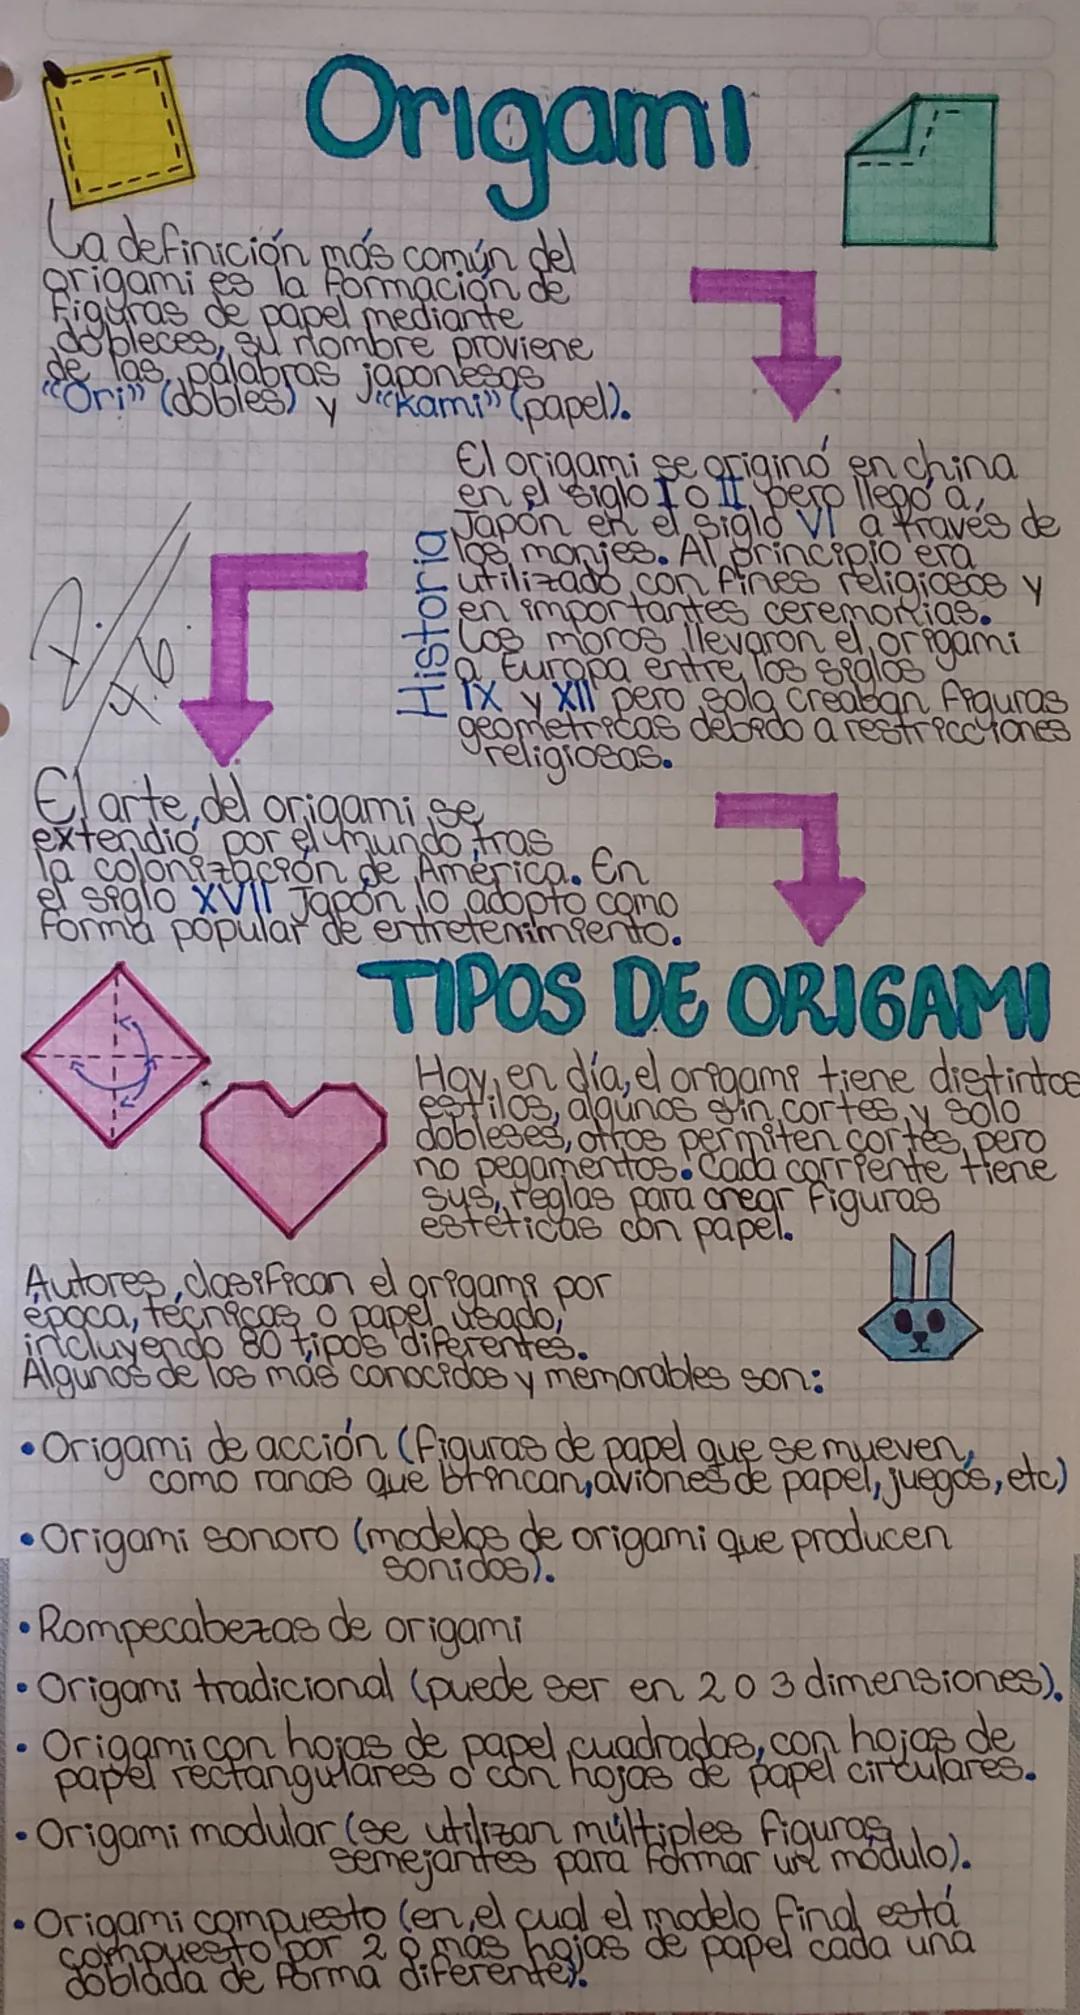 Origami
La definición más común del
origami es la formación de
figuras de papel mediante
dobleces, su nombre proviene
de las palabras japonesas
"Ori" (dobles) y "Kami" (papel).
Historia
El origami se originó en china
en el siglo I o II pero llegó a
Japón en el siglo VI a través de
los monjes. Al principio era
utilizado con fines religiosos y
en importantes ceremonias.
Los moros llevaron el origami
a Europa entre los siglos
IX y XII pero solo creaban figuras
geometricas debido a restricciones
religiosas.
El arte del origami se
extendió por el mundo tras
la colonización de América. En
el siglo XVII Japón lo adopto como
forma popular de entretenimiento.
TIPOS DE ORIGAMI
Hoy en día, el origami tiene distintos
estilos, algunos sin cortes y solo
dobleses, otros permiten cortes pero
no pegamentos. Cada corriente tiene
sus reglas para crear figuras
estéticas con papel.
Autores clasifican el origami por
época, técnicas o papel usado,
incluyendo 80 tipos diferentes.
Algunos de los más conocidos y memorables son:
• Origami de acción (figuras de papel que se mueven,
como ranas que brincan, aviones de papel, juegos, etc)
• Origami sonoro (modelos de origami que producen
sonidos).
• Rompecabezas de origami
• Origami tradicional (puede ser en 2 o 3 dimensiones).
• Origami con hojas de papel cuadradas, con hojas de
papel rectangulares o con hojas de papel circulares.
• Origami modular (se utilizan múltiples figuras
semejantes para formar un módulo).
• Origami compuesto (en el cual el modelo final está
compuesto por 2 o más hojas de papel cada una
doblada de forma diferente).